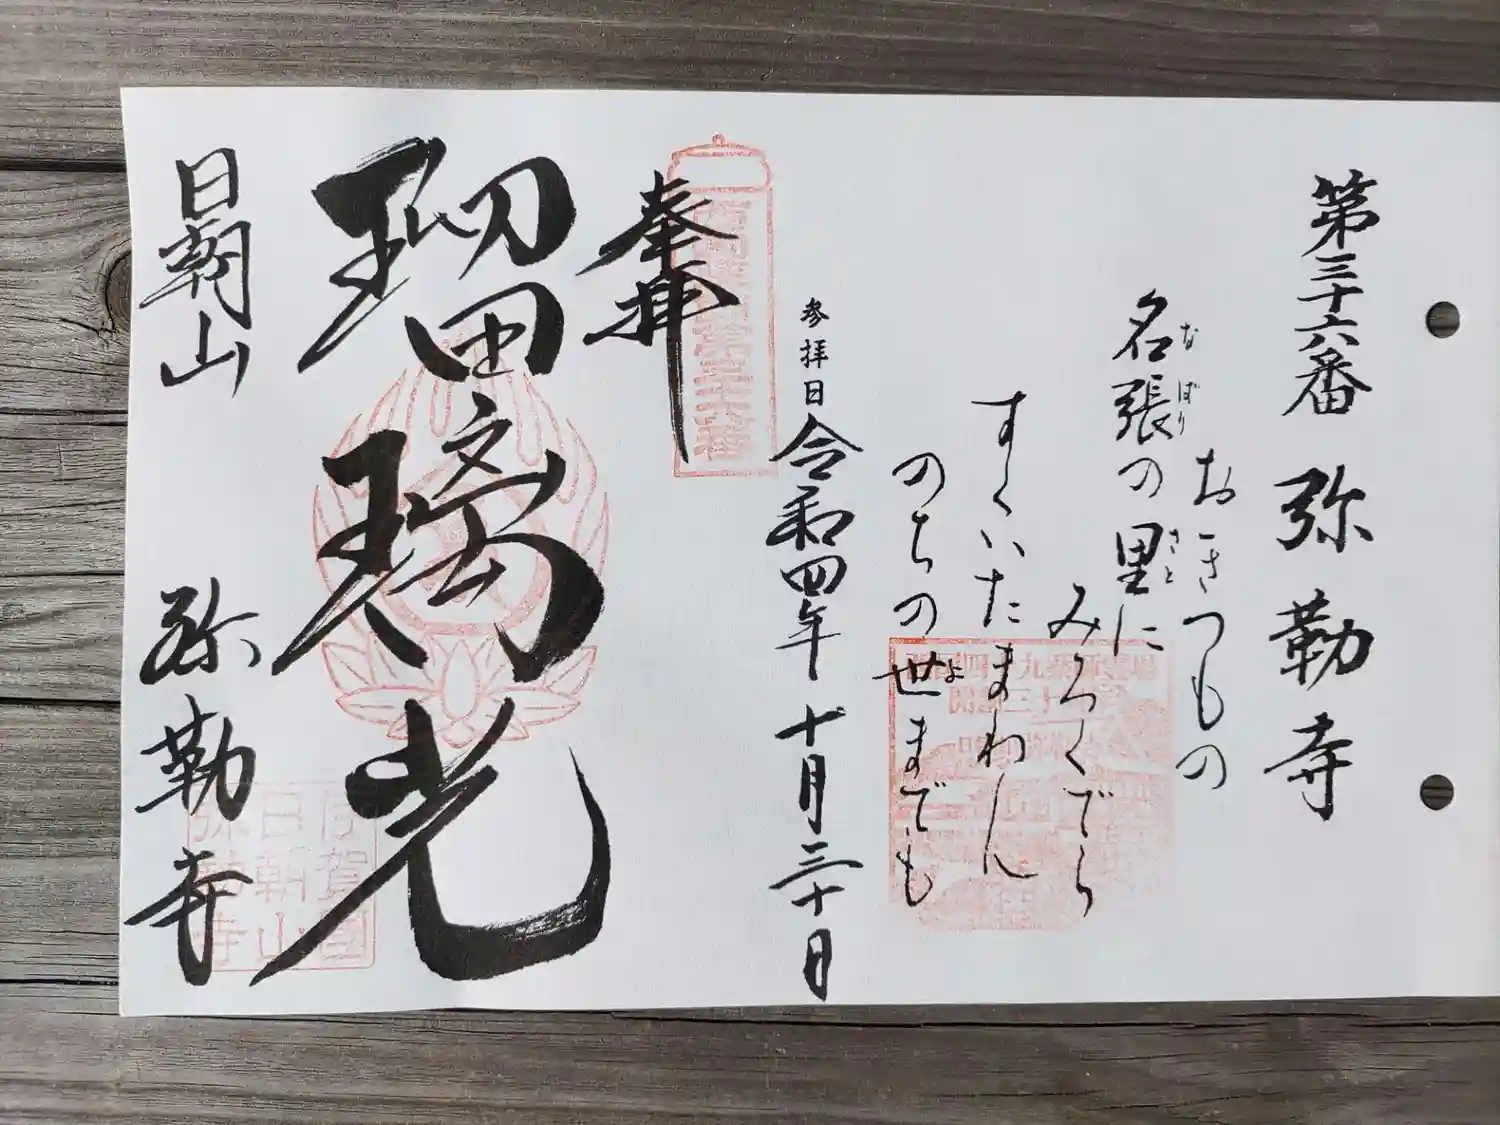 第三十六番 弥勒寺
おきつもの
名張の里に
なばり
さと
みろくでら
すくいたまわん
のちの世までも
よ
参拝日 令和四年 十月三十日
奉拝
瑠璃光
日朝山 弥勒寺
伊賀國
日朝山
弥勒寺